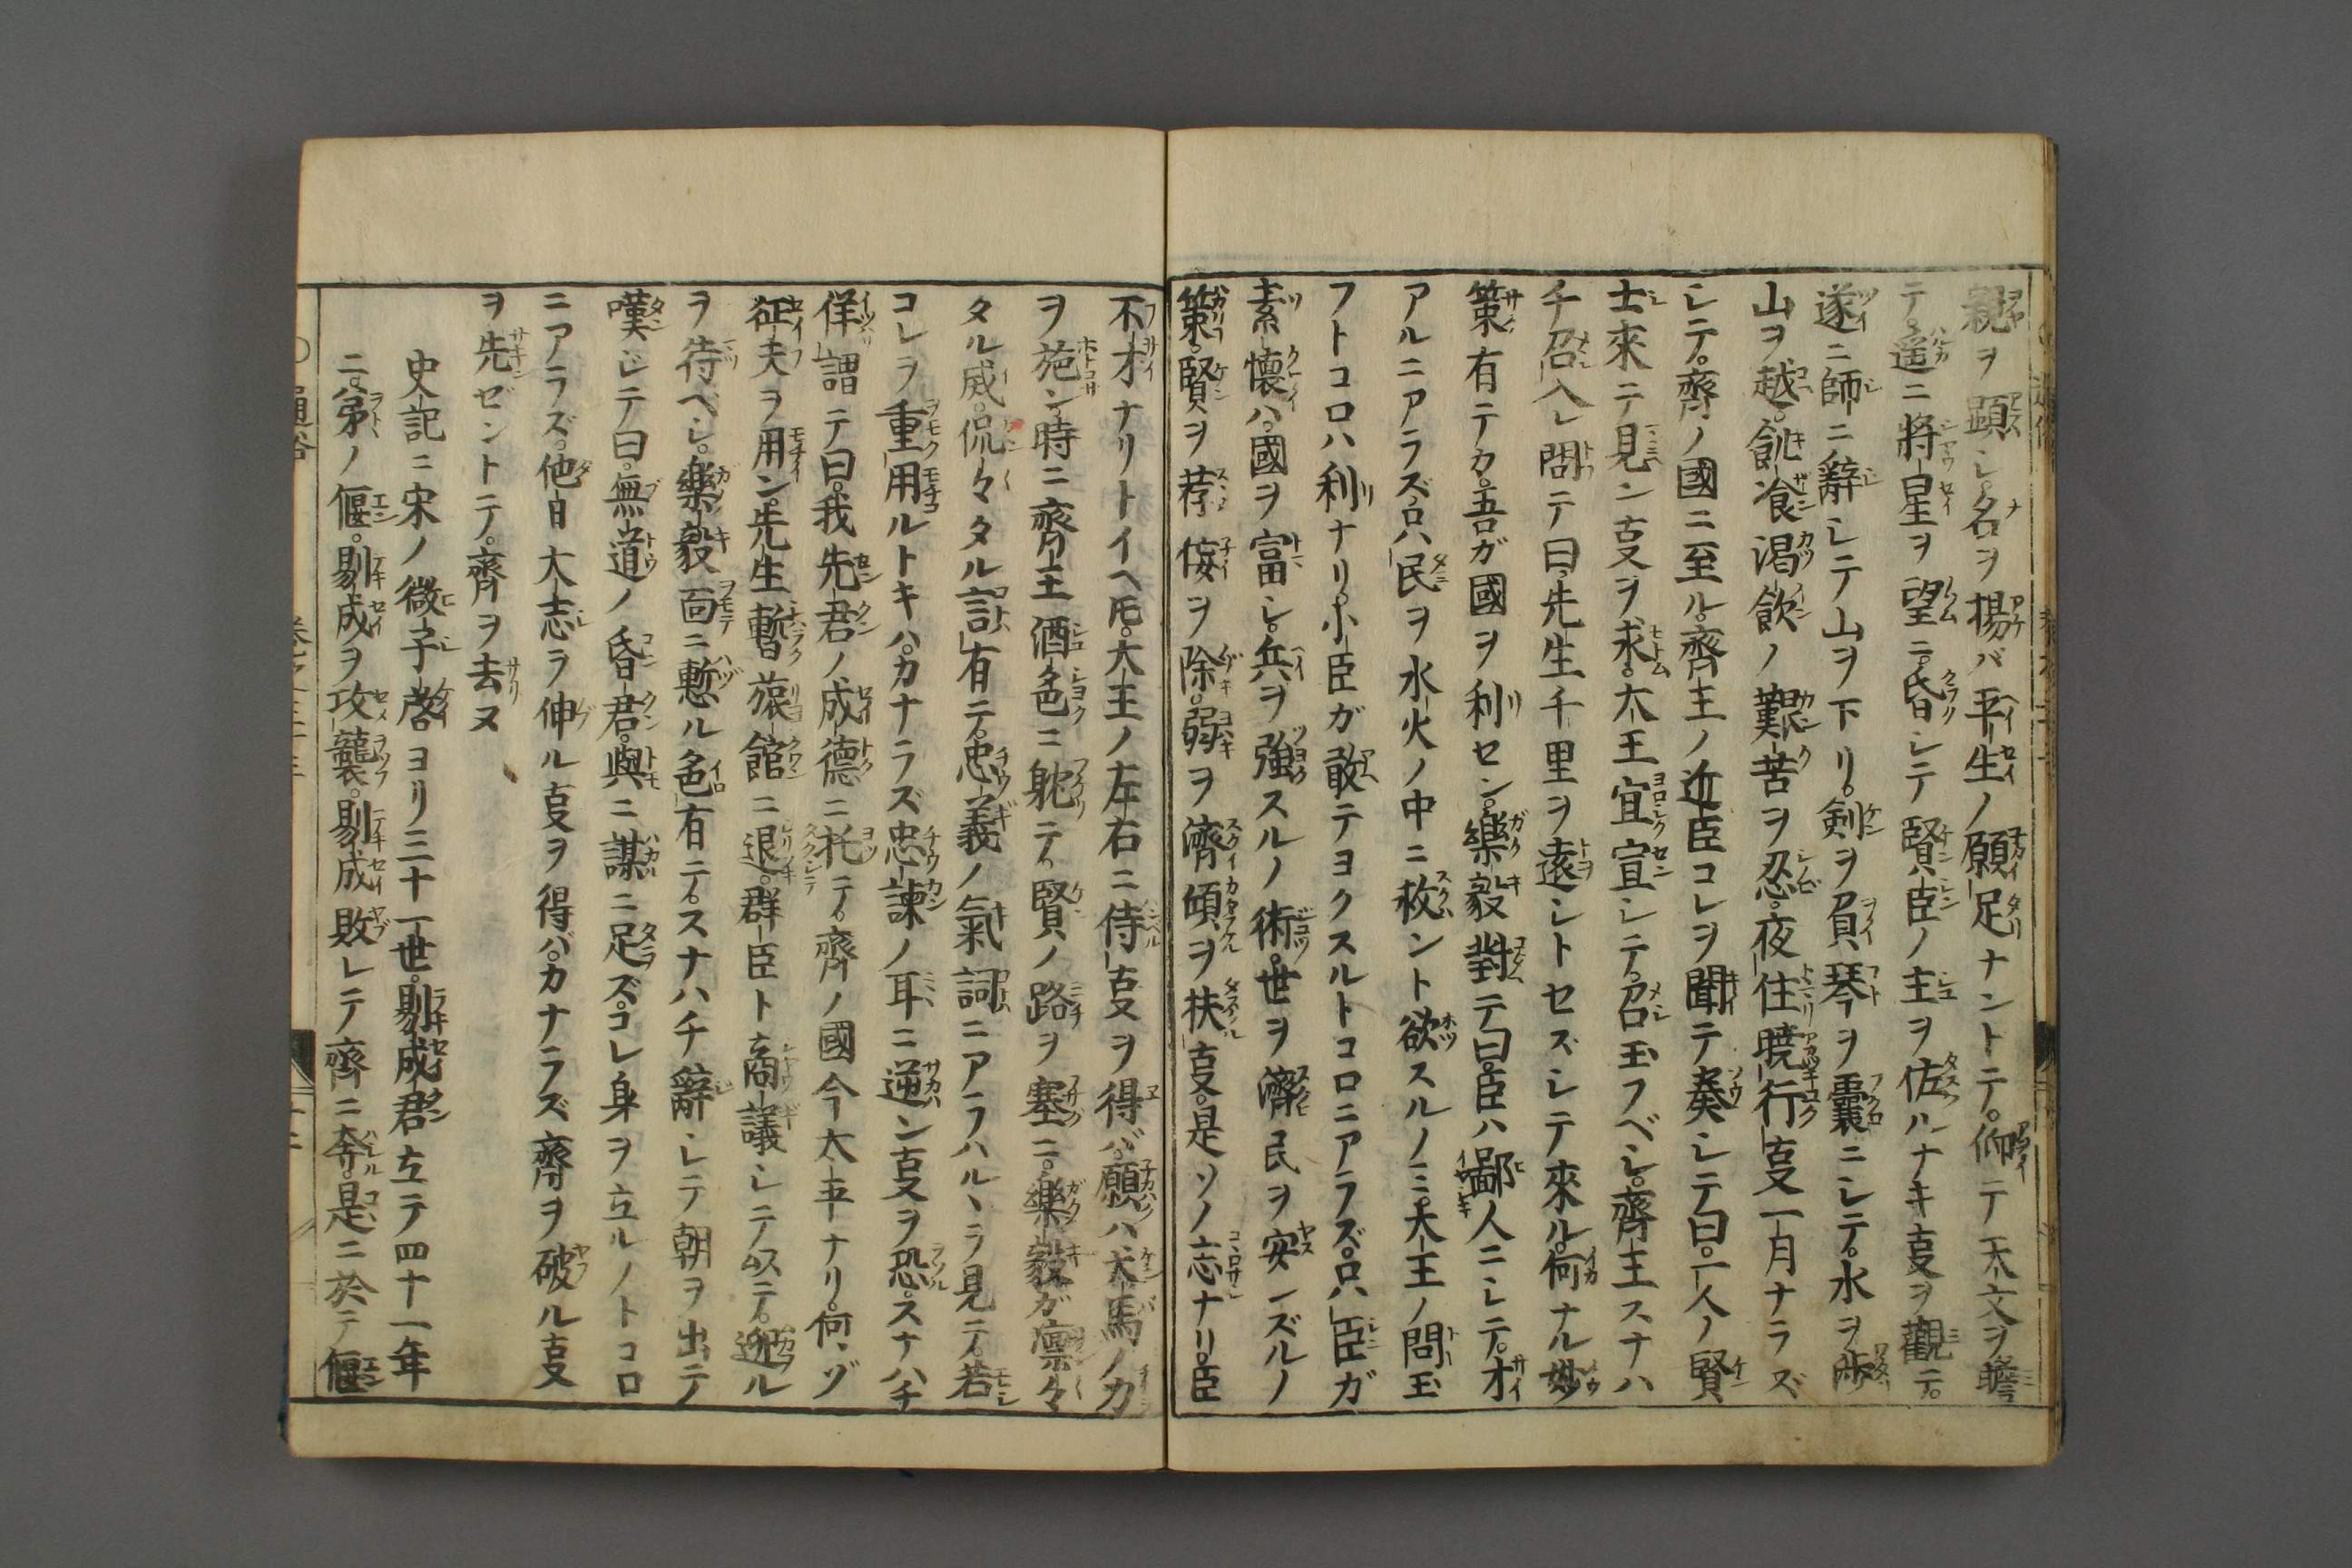 親ヲ顕シ名ヲ揚バ平生ノ願足ナントテ。仰テ天文ヲ瞻
テ。遥ニ將星ヲ望ニ。昏シテ賢臣ノ主ヲ佐ルナキ𫝕ヲ觀テ。
遂ニ師ニ辭シテ山ヲ下リ。剣ヲ負琴ヲ嚢ニシテ。水ヲ渉
山ヲ越。飢飡渇飲ノ艱苦ヲ忍。夜住曉行𫝕一月ナラズ
シテ。齊ノ國ニ至ル。齊王ノ近臣コレヲ聞テ奏シテ曰。一人ノ賢
士來ニテ見ン𫝕ヲ求。大王宜宣シテ。召玉フベシ。齊王スナハ
チ召入レ問テ曰。先生千里ヲ遠シトセズシテ來ル。何ナル妙
策有テカ。吾ガ國ヲ利セン。樂毅對テ曰。臣ハ鄙人ニシテ。才
アルニアラズ。只民ヲ水火ノ中ニ救ント欲スルノミ。大王ノ問玉
フトコロハ利ナリ。小臣ガ敢テヨクスルトコロニアラズ。只臣ガ
素懷ハ。國ヲ富シ。兵ヲ強スルノ術。世ヲ濟民ヲ安ンズルノ
策。賢ヲ荐侫ヲ除。弱ヲ濟傾ヲ扶𫝕。是ソノ志ナリ。臣
不才ナリトイヘ𪜈。大王ノ左右ニ侍𫝕ヲ得バ。願ハ犬馬ノ力
ヲ施ン。時ニ齊王酒色ニ躭テ。賢ノ路ヲ塞ニ。樂毅ガ凛々
タル威。侃々タル言有テ。忠義ノ氣詞ニアラハルヽヲ見テ。若
コレヲ重用ルトキハ。カナラズ忠諫ノ耳ニ逆ン𫝕ヲ恐。スナハチ
佯謂テ曰。我先君ノ成德ニ托テ。齊ノ國今太平ナリ。何ゾ
征夫ヲ用ン。先生暫旅館ニ退。群臣ト商議シテ以テ。迎ル
ヲ待ベシ。樂毅面ニ慙ル色有テ。スナハチ辭シテ朝ヲ出テ
嘆ジテ曰。無道ノ昏君。與ニ謀ニ足ズ。コレ身ヲ立ルノトコロ
ニアラズ。他日大志ヲ伸ル𫝕ヲ得バ。カナラズ齊ヲ破ル𫝕
ヲ先ゼントテ。齊ヲ去ヌ
史記ニ宋ノ微子啓ヨリ三十一世。剔成君立テ四十一年
ニ。弟ノ偃。剔成ヲ攻襲。剔成敗レテ齊ニ奔。是ニ於テ偃